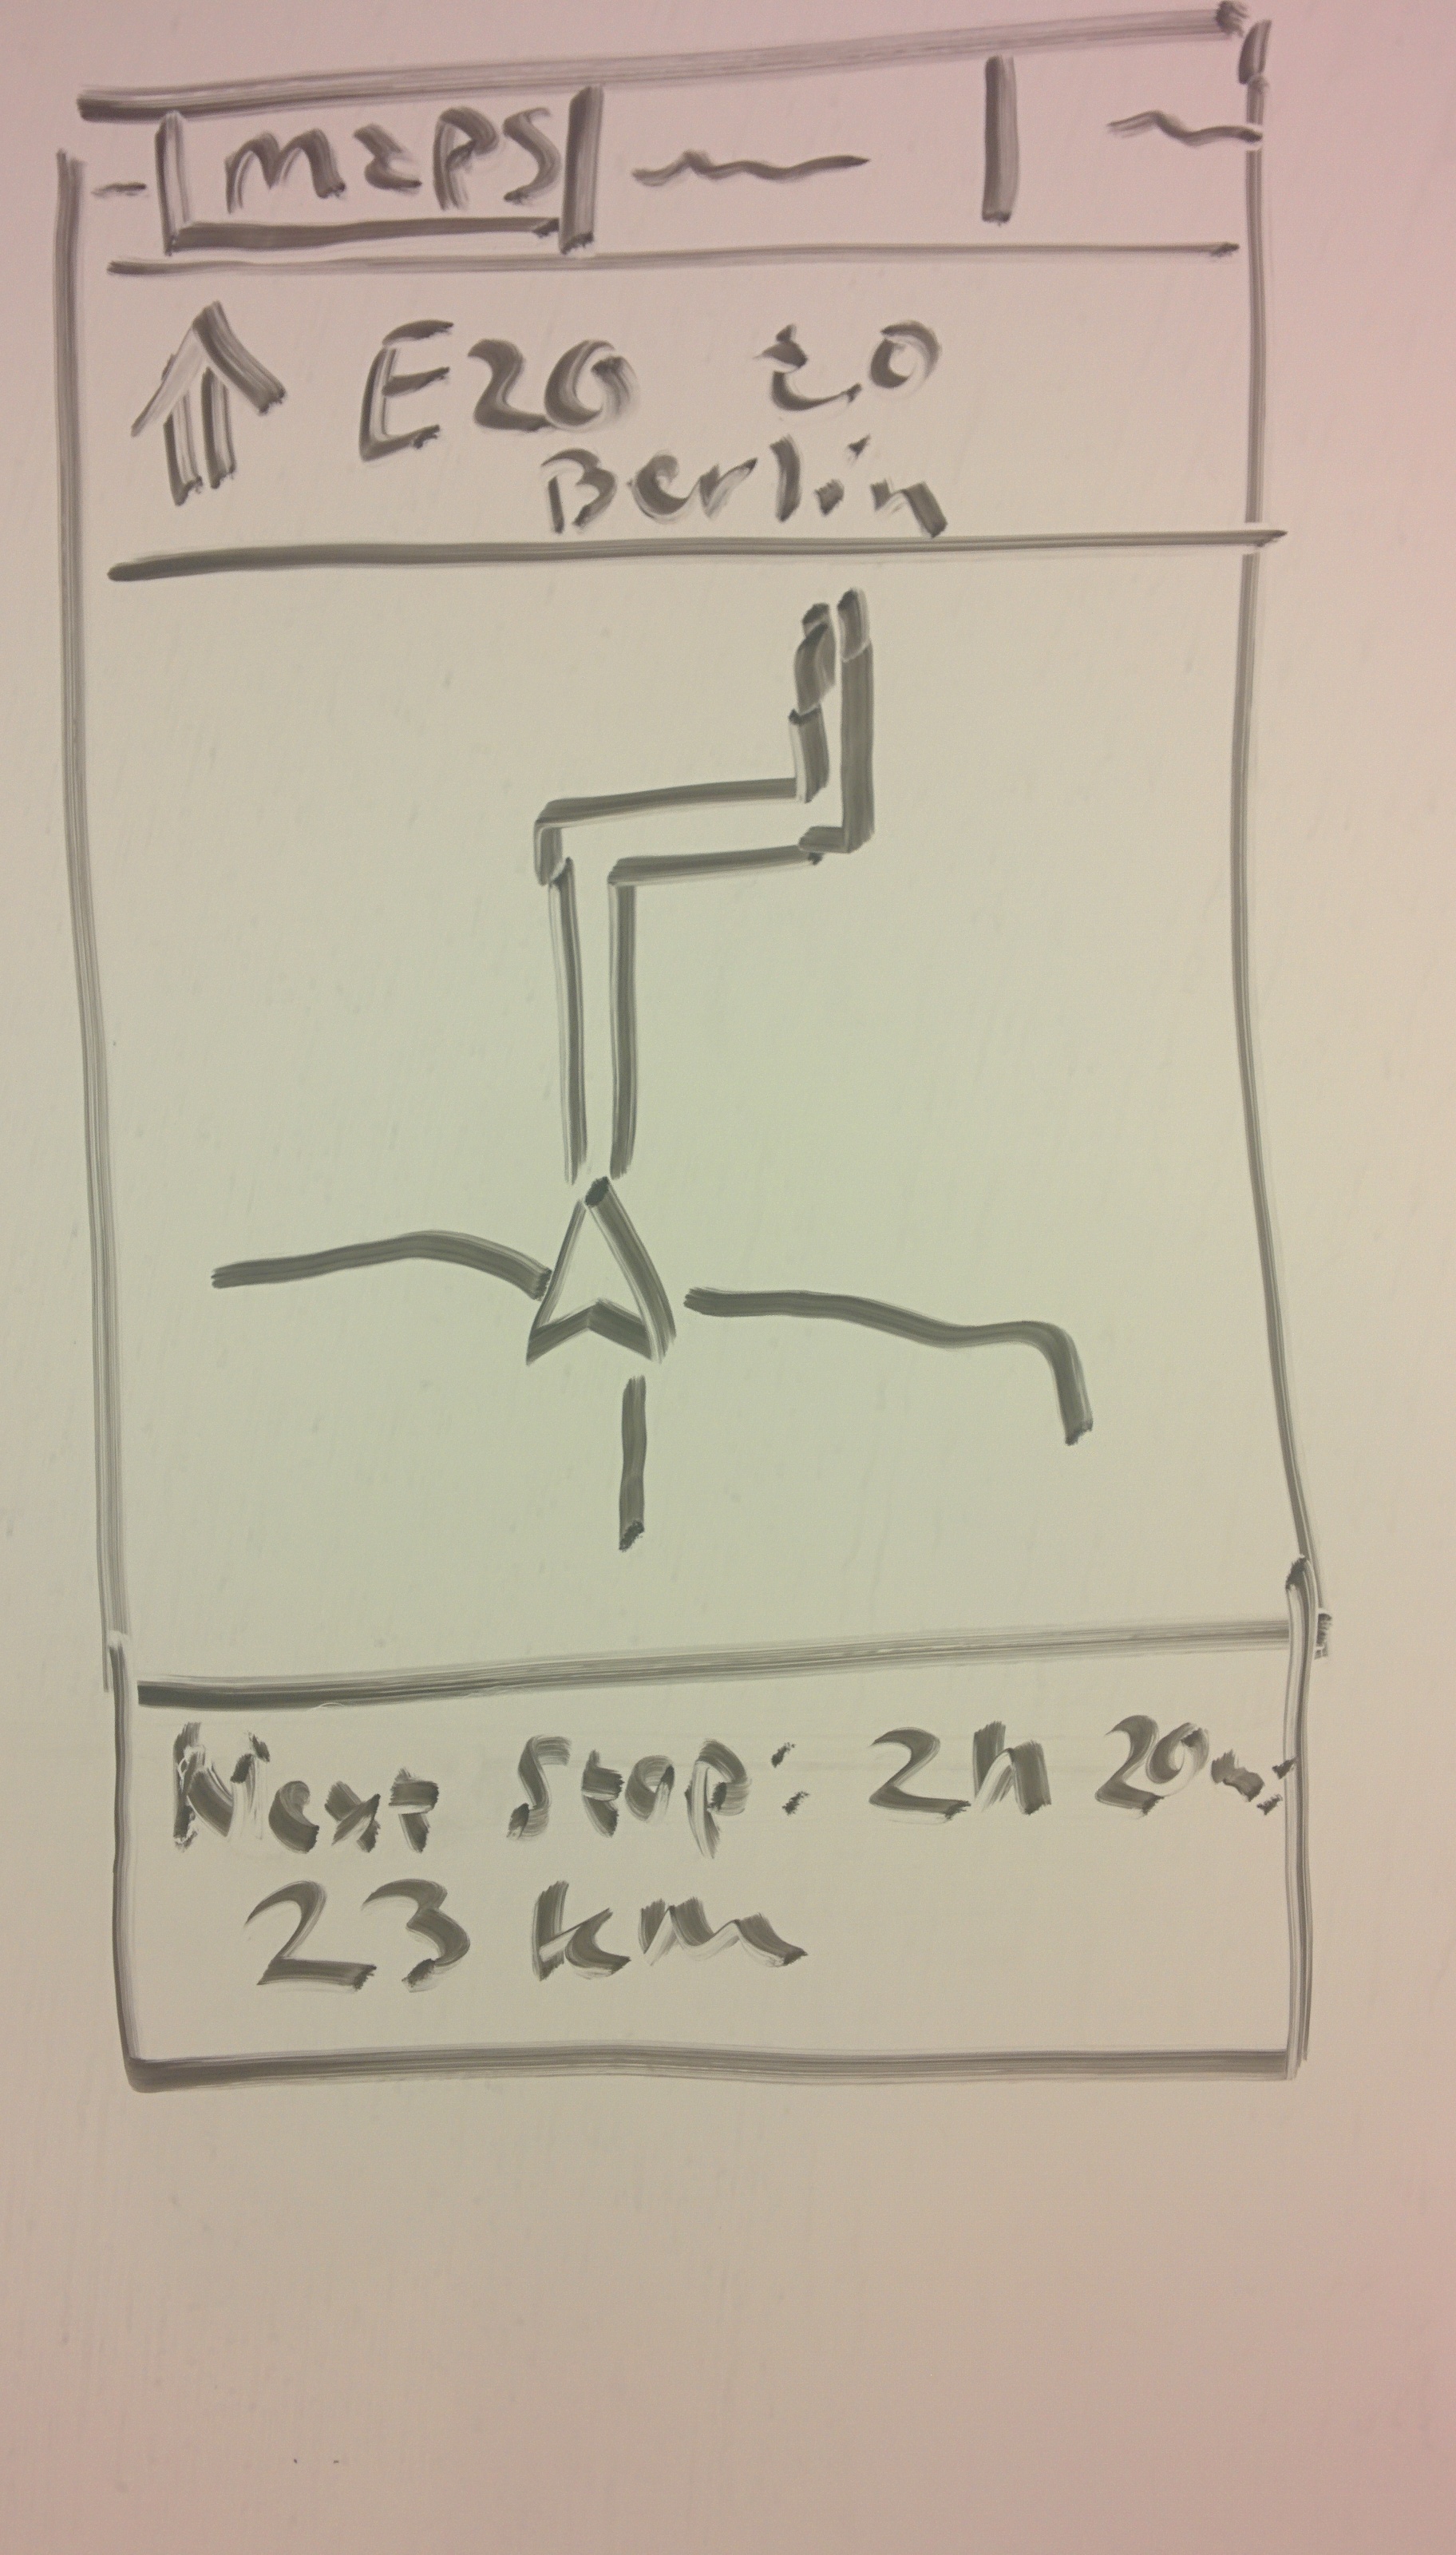 maps
E20 to
Berlin
Next Stop: 2h 20m
23 km